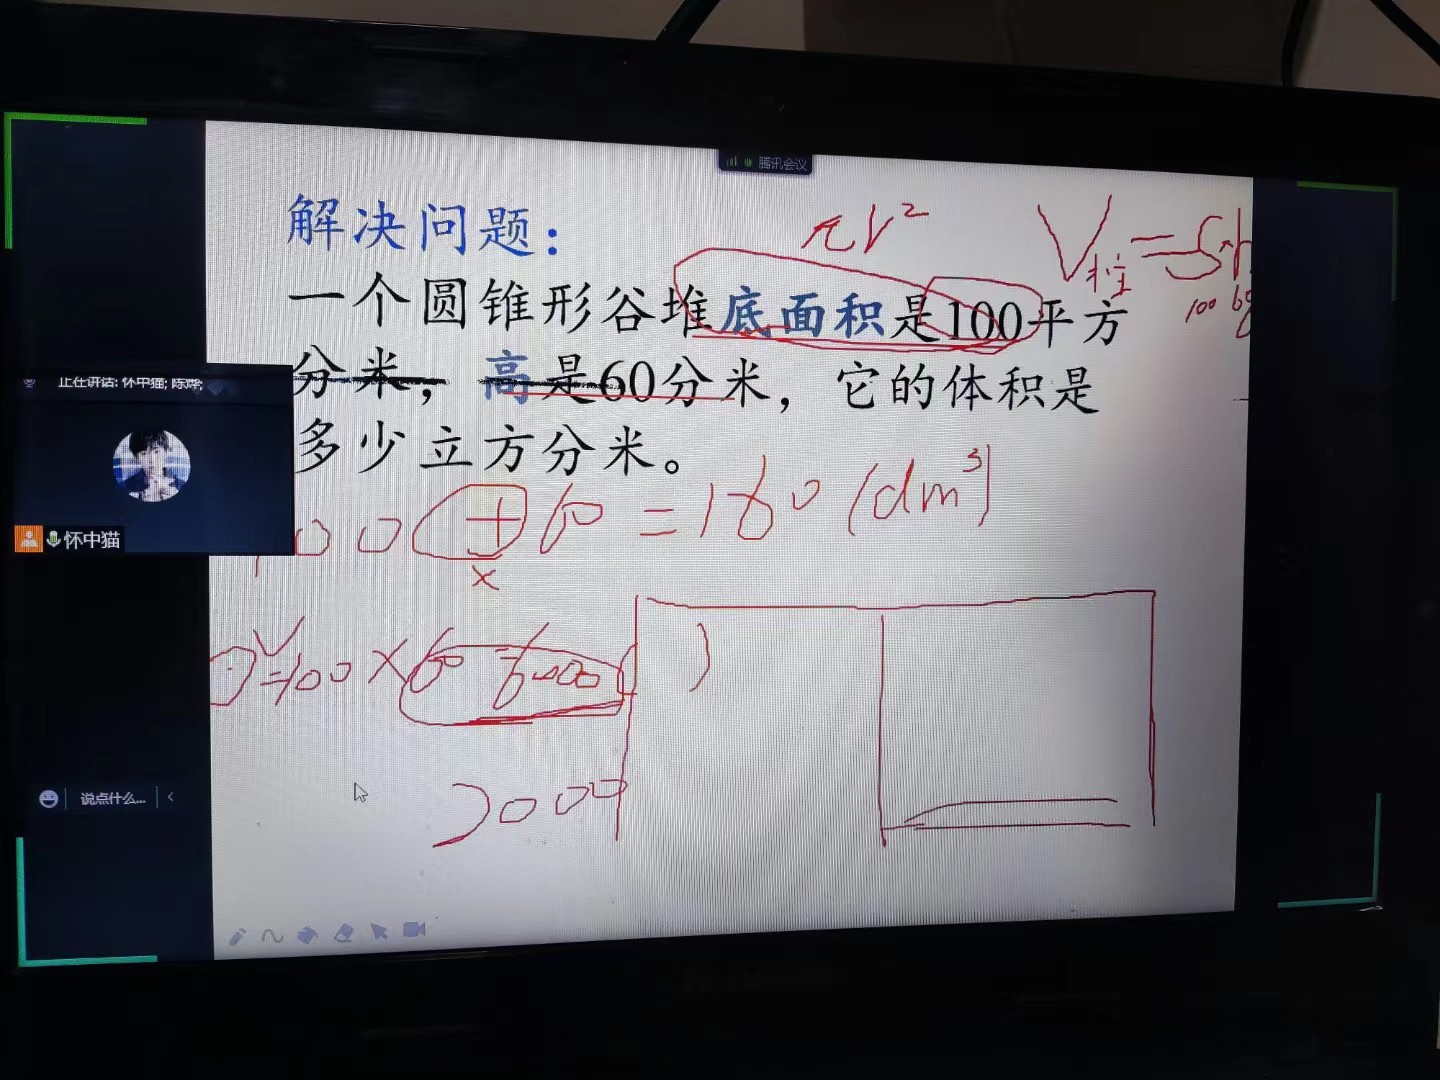 腾讯会议
解决问题：
πr²
V柱=Sh
一个圆锥形谷堆底面积是100平方
100 60
分米，高是60分米，它的体积是
正在讲话: 怀中猫; 陈烨;
多少立方分米。
100+60=160(dm³)
怀中猫
×
V=100×60=6000
说点什么...